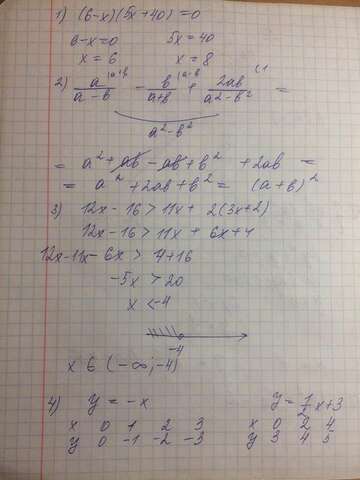 1) (6-x)(5x+40)=0
6-x=0 5x=40
x=6 x=8
2) a/(a-b) |a+b - b/(a+b) |a-b + 2ab/(a²-b²) (1 =
a²-b²
= a²+ab-ab+b² +2ab =
= a²+2ab+b² = (a+b)²
3) 12x-16>11x+ 2(3x+2)
12x-16>11x+ 6x+4
12x-11x-6x> 4+16
-5x>20
x<-4
-4
x є (-∞;-4)
4) y=-x y=1/2x+3
x 0 1 2 3 x 0 2 4
y 0 -1 -2 -3 y 3 4 5